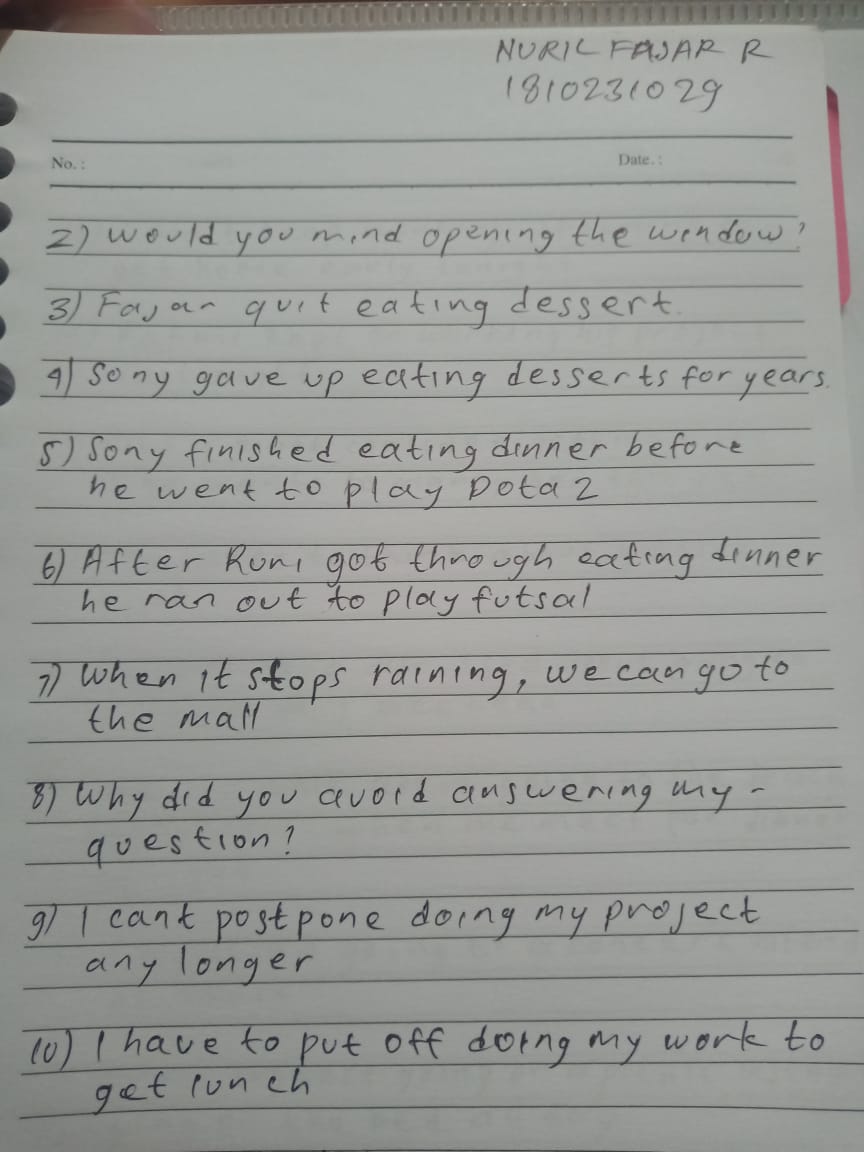 NURIL FAJAR R
1810231029
No. :
Date. :
2) Would you mind opening the window?
3) Fajar quit eating dessert.
4) Sony gave up eating desserts for years.
5) Sony finished eating dinner before
he went to play Dota 2
6) After Roni got through eating dinner
he ran out to play futsal
7) When it stops raining, we can go to
the mall
8) Why did you avoid answering my -
question?
9) I cant postpone doing my project
any longer
10) I have to put off doing my work to
get lunch